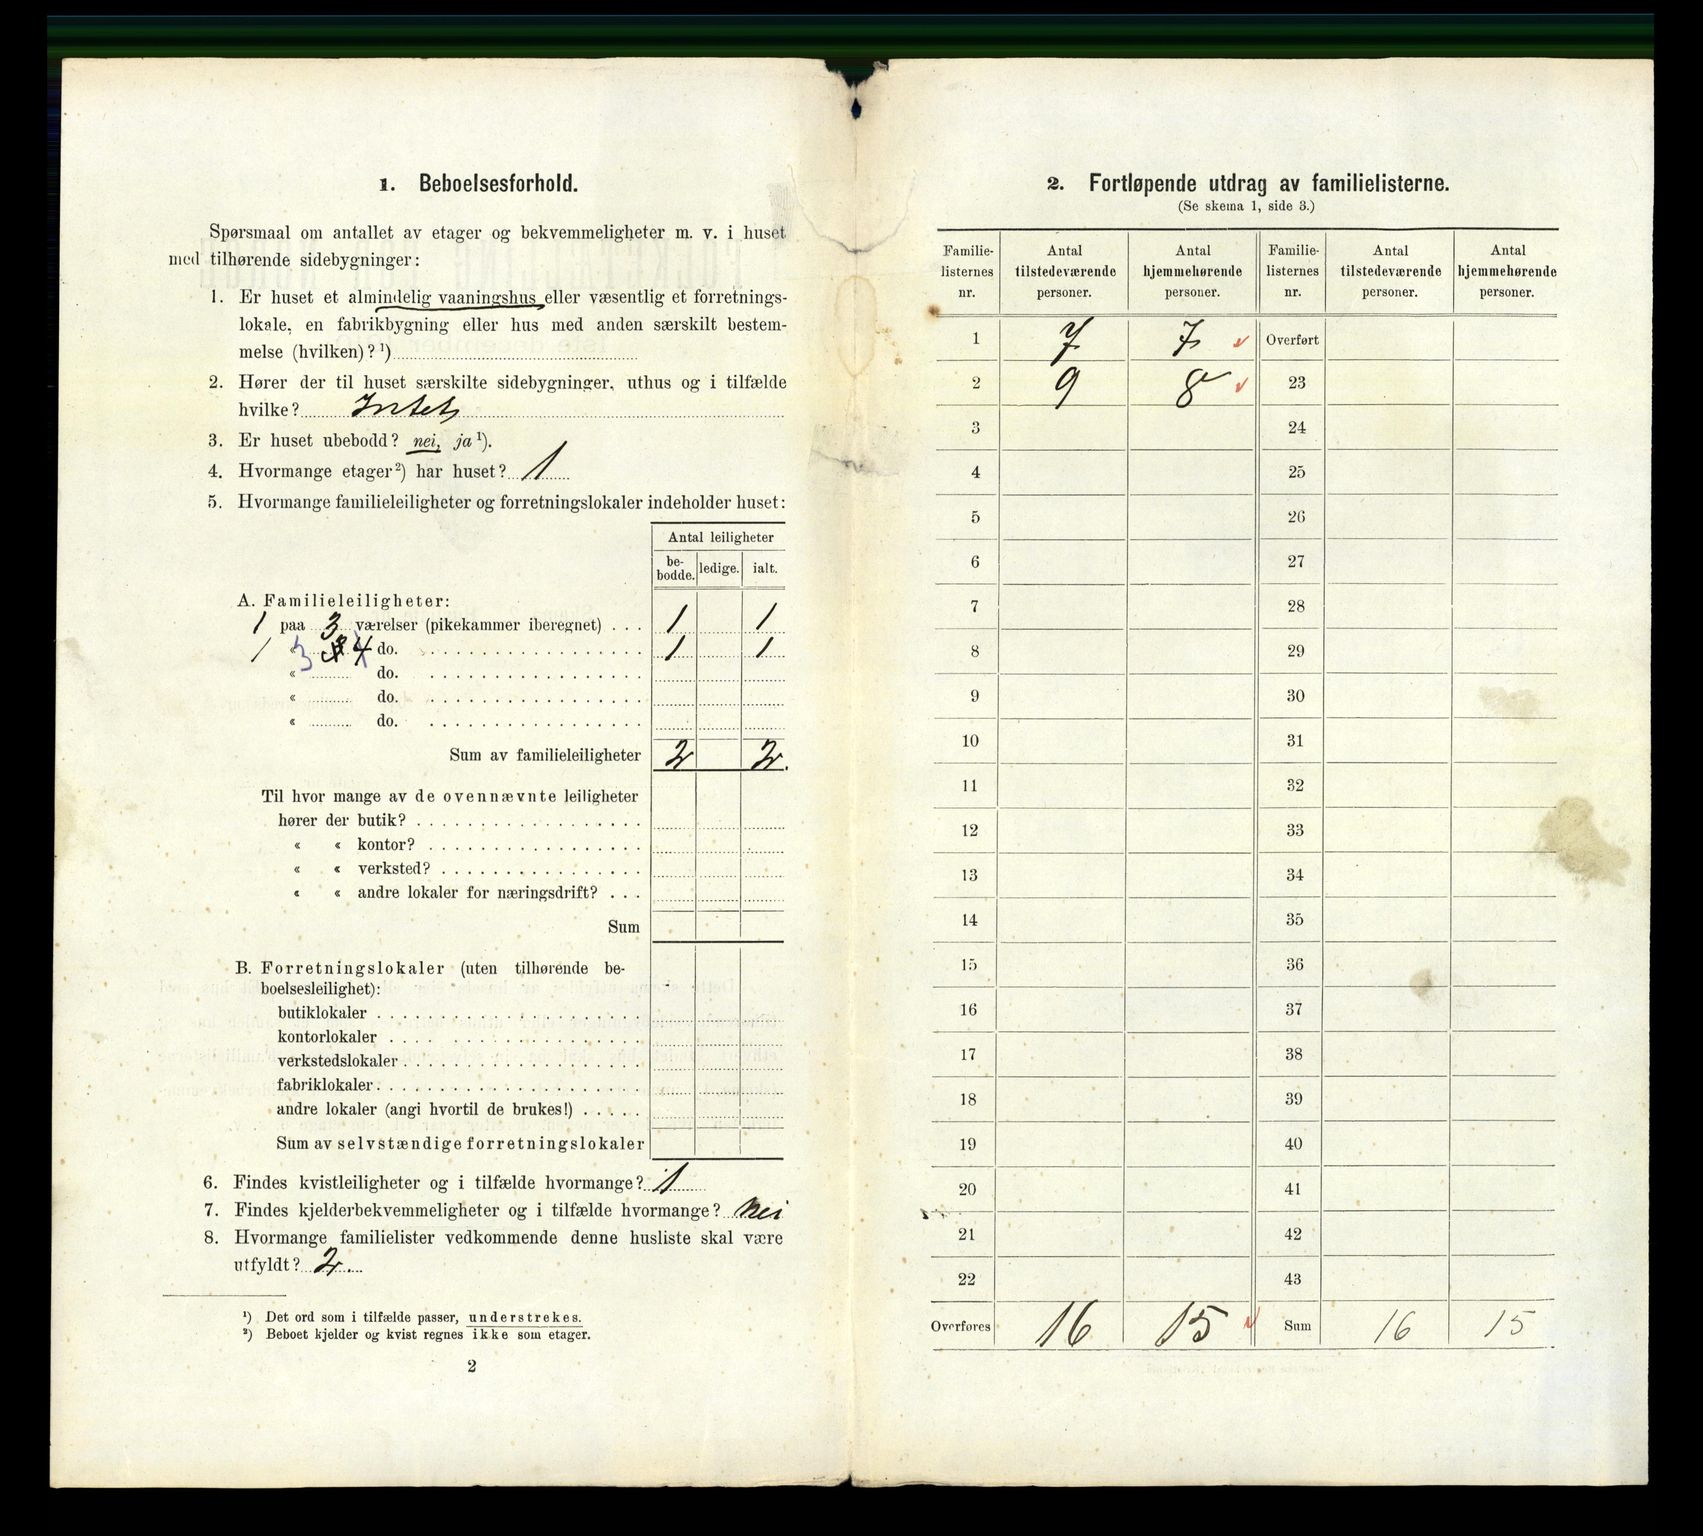 1. Beboelsesforhold.
Spørsmaal om antallet av etager og bekvemmeligheter m. v. i huset
med tilhørende sidebygninger:
1. Er huset et almindelig vaaningshus eller væsentlig et forretnings-
lokale, en fabrikbygning eller hus med anden særskilt bestem-
melse (hvilken)? ¹)
2. Hører der til huset særskilte sidebygninger, uthus og i tilfælde
hvilke? Intet
3. Er huset ubebodd? nei, ja ¹).
4. Hvormange etager ²) har huset? 1
5. Hvormange familieleiligheter og forretningslokaler indeholder huset:
Antal leiligheter
be-
bodde. ledige. ialt.
A. Familieleiligheter:
1 paa 3 værelser (pikekammer iberegnet) . . . 1 1
1 « 3 4 do. 1 1
« do.
« do.
« do.
Sum av familieleiligheter 2 2.
Til hvor mange av de ovennævnte leiligheter
hører der butik?
« « kontor?
« « verksted?
« « andre lokaler for næringsdrift? . . .
Sum
B. Forretningslokaler (uten tilhørende be-
boelsesleilighet):
butiklokaler
kontorlokaler
verkstedslokaler
fabriklokaler
andre lokaler (angi hvortil de brukes!)
Sum av selvstændige forretningslokaler
6. Findes kvistleiligheter og i tilfælde hvormange? 1
7. Findes kjelderbekvemmeligheter og i tilfælde hvormange? nei
8. Hvormange familielister vedkommende denne husliste skal være
utfyldt? 2.
¹) Det ord som i tilfælde passer, understrekes.
²) Beboet kjelder og kvist regnes ikke som etager.
2
2. Fortløpende utdrag av familielisterne.
(Se skema 1, side 3.)
Familie- Antal Antal Familie- Antal Antal
listernes tilstedeværende hjemmehørende listernes tilstedeværende hjemmehørende
nr. personer. personer. nr. personer. personer.
1 7 7 Overført
2 9 8 23
3 24
4 25
5 26
6 27
7 28
8 29
9 30
10 31
11 32
12 33
13 34
14 35
15 36
16 37
17 38
18 39
19 40
20 41
21 42
22 43
Overføres 16 15 Sum 16 15